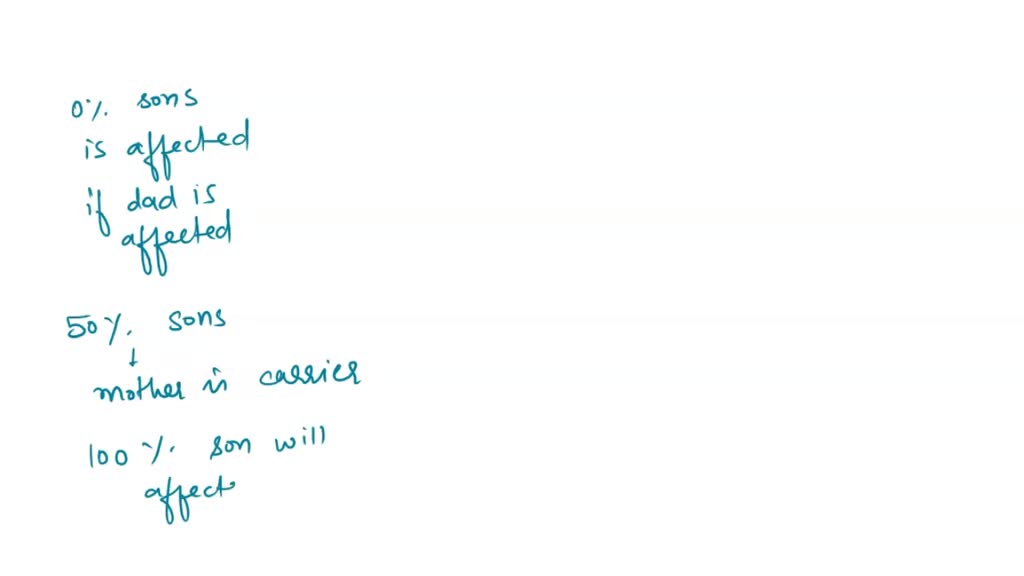 0%. sons
is affected
if dad is
affected
50%. sons
↓
mother is carrier
100%. son will
affect